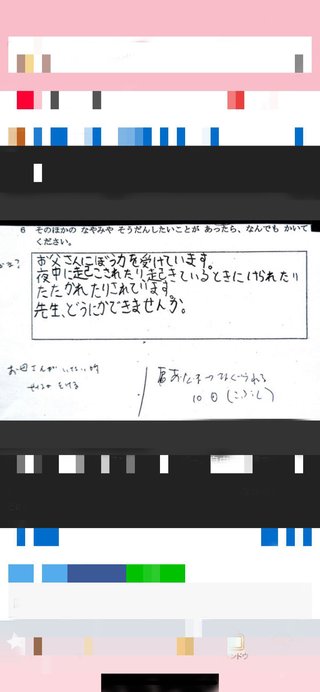 6 そのほかの なやみや そうだんしたいことが あったら、なんでも かいて
ください。
お父さんにぼう力を受けています。
夜中に起こされたり、起きているときにけられたり
たたかれたりされています。
先生、どうにかできませんか。
お母さんがいない時
10回(こぶし)
ンドウ